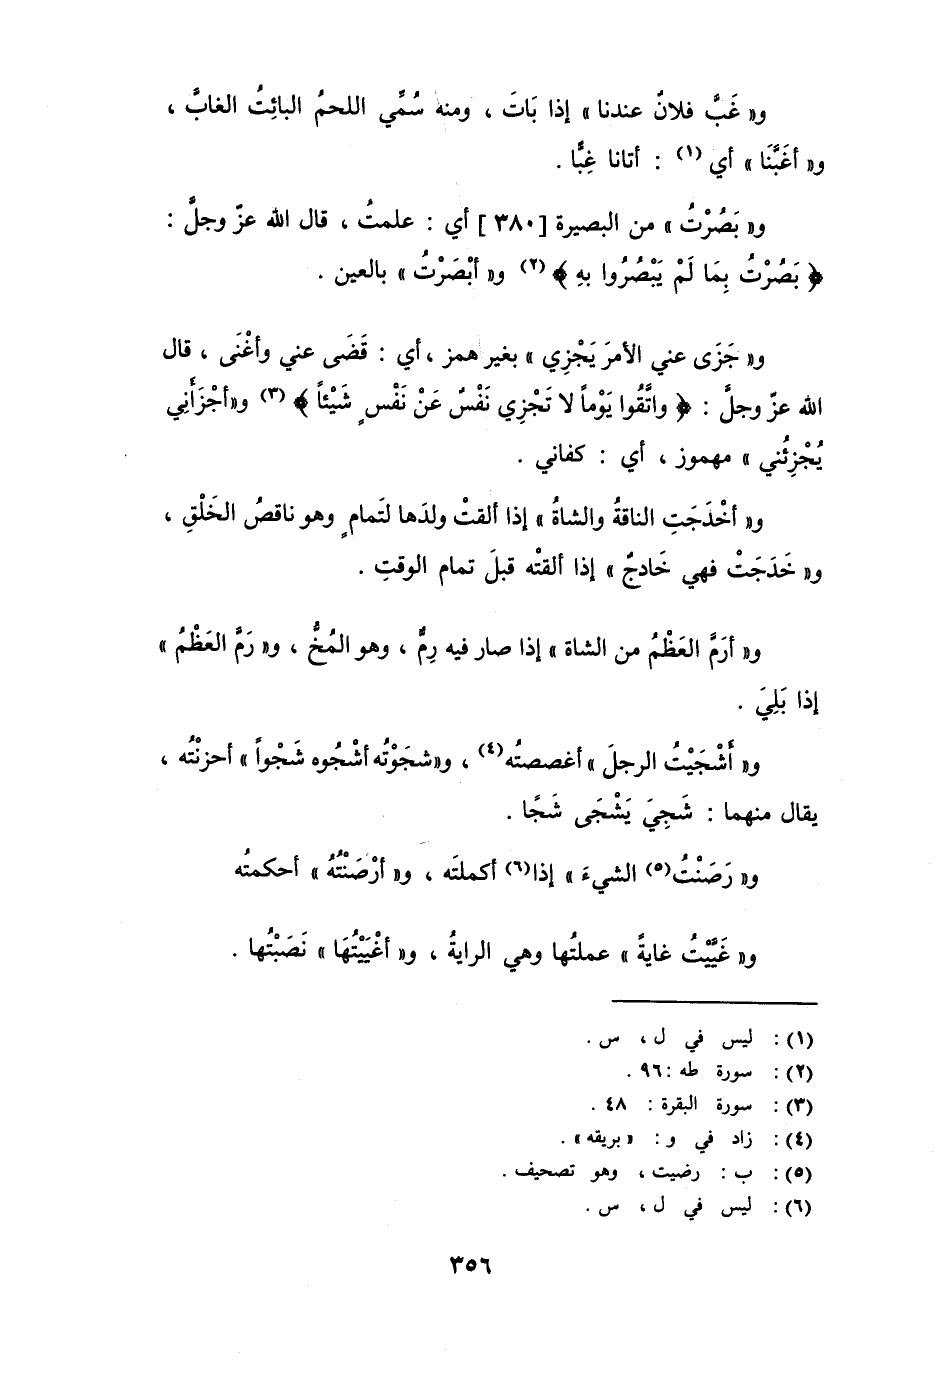 و« غَبَّ فلانٌ عندنا » إذا بَاتَ ، ومنه سُمِّي اللحمُ البائِتُ الغابَّ ،
و« أغَبَّنَا » أي (١) : أتانا غِبًّا .
و« بَصُرْتُ » من البصيرة [ ٣٨٠ ] أي : علمتُ ، قال الله عزّ وجلَّ :
﴿ بَصُرْتُ بِمَا لَمْ يَبْصُرُوا بهِ ﴾ (٢) و« أبْصَرْتُ » بالعين .
و« جَزَى عني الأمرَ يَجْزِي » بغير همز ، أي : قَضَى عني وأغْنَى ، قال
الله عزّ وجلَّ : ﴿ واتَّقُوا يَوْماً لا تَجْزِي نَفْسٌ عَنْ نَفْسٍ شَيْئاً ﴾ (٣) و«أجْزَأَنِي
يُجْزِئُني » مهموز ، أي : كفاني .
و« أخْدَجَتِ الناقةُ والشاةُ » إذا ألقتْ ولدَها لتَمامٍ وهو ناقصُ الخَلْقِ ،
و« خَدَجَتْ فهي خَادجٌ » إذا ألقتْه قبلَ تمام الوقتِ .
و« أرَمَّ العَظْمُ من الشاة » إذا صار فيه رِمٌّ ، وهو المُخُّ ، و« رَمَّ العَظْمُ »
إذا بَلِيَ .
و« أَشْجَيْتُ الرجلَ » أغصصتُه (٤) ، و«شجَوْتُه أشْجُوه شَجْواً » أحزنْتُه ،
يقال منهما : شَجِيَ يَشْجَى شَجًا .
و« رَصَنْتُ (٥) الشيءَ » إذا (٦) أكملتَه ، و« أرْصَنْتُهُ » أحكمتُه
و« غَيَّيْتُ غايةً » عملتُها وهي الرايةُ ، و« أغْيَيْتُهَا » نَصَبْتُها .
(١) : ليس في ل ، س .
(٢) : سورة طه : ٩٦ .
(٣) : سورة البقرة : ٤٨ .
(٤) : زاد في و : « بريقه » .
(٥) : ب : رضيت ، وهو تصحيف .
(٦) : ليس في ل ، س .
٣٥٦